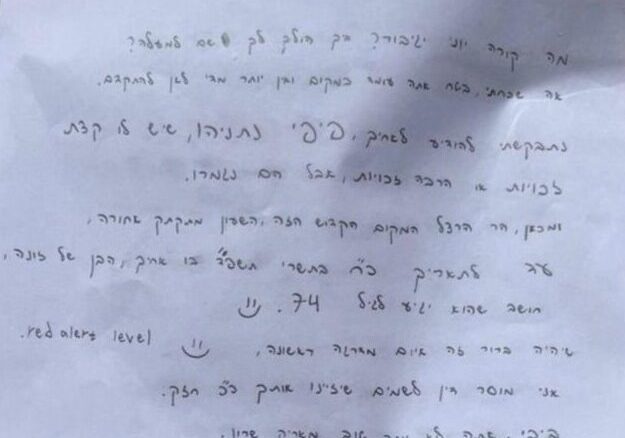 מה קורה יוני יגיבור? איך הולך לך שם למעלה?
אה שכחתי, בטח אתה עומד במקום ואין יותר מדי לאן להתקדם.
נתבקשתי להודיע לאחיך, פיפי נתניהו, שיש לו קצת
זכויות או הרבה זכויות, אבל הם נגמרו.
ומכאן, הר הרצל המקום הקדוש הזה, השעון מתקתק אחורה,
עד לתאריך כ"ח בתשרי תשפ"ד בו אחיך, הבן של זונה,
חושב שהוא יגיע לגיל 74.
שיהיה ברור זה איום מדרגה ראשונה, red alert level.
אני מוסר דין לשמים שיזיינו אותך כ"כ חזק.
פיפי אתה לא טוב מאריה שרון.